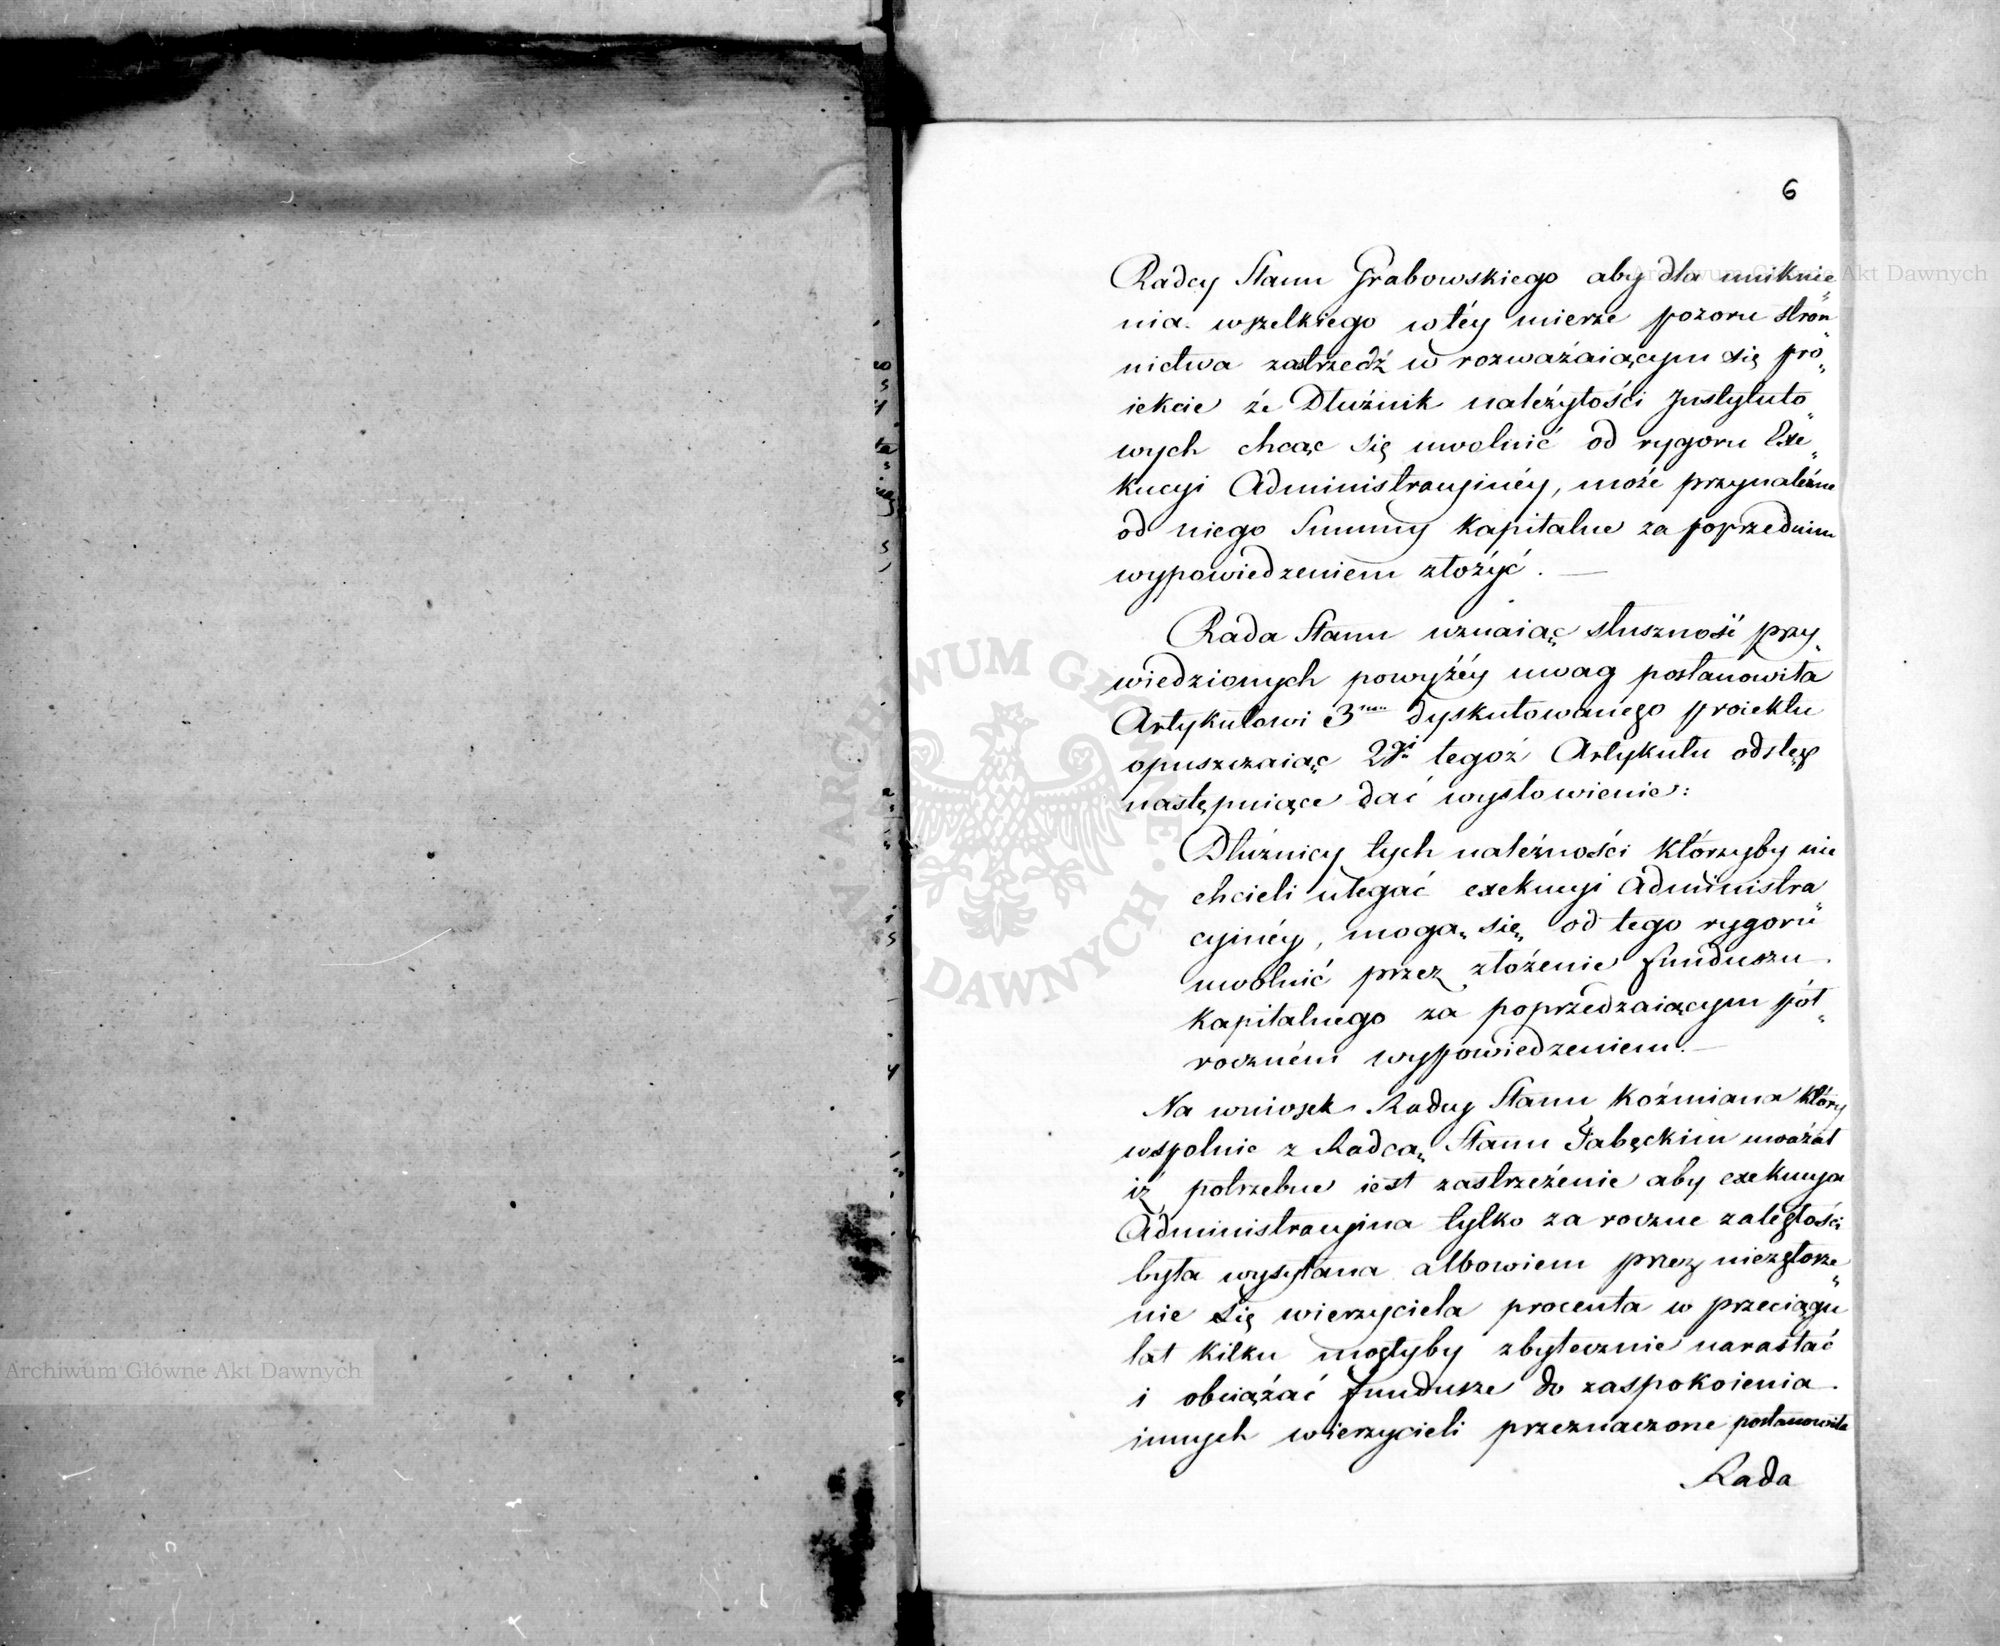 6
Radcy Stanu Grabowskiego aby dla uniknie„
nia wszelkiego w téy mierze pozoru stron„
nictwa zastrzedź w rozważaiącym się pro„
iekcie że Dłużnik należytości Instytuto„
wych chcąc się uwolnić od rygoru Exe„
kucyi Administracyinéy, może przynależne
od niego Summy kapitalne za poprzednim
wypowiedzeniem złożyć. —
Rada Stanu uznaiąc słuszność przy„
wiedzionych powyżéy uwag postanowiła
Artykułowi 3mu dyskutowanego proiektu
opuszczaiąc 2gi tegoż Artykułu odstęp
następuiące dać wysłowienie:
Dłużnicy tych należności którzyby nie
chcieli ulegać exekucyi Administra„
cyinéy, mogą się od tego rygoru
uwolnić przez złożenie funduszu
kapitalnego za poprzedzaiącym pół„
roczném wypowiedzeniem. —
Na wniosek Radcy Stanu Koźmiana który
wspolnie z Radcą Stanu Gabęckim uważał
iż potrzebne iest zastrzeżenie aby exekucya
Administracyina tylko za roczne zaległości
była wysyłana albowiem przez niezgłosze„
nie się wierzyciela procenta w przeciągu
lat kilku mogłyby zbytecznie narastać
i obciążać fundusze do zaspokoienia
innych wierzycieli przeznaczone postanowiła
Rada
Archiwum Główne Akt Dawnych
Archiwum Główne Akt Dawnych
ARCHIWUM GŁÓWNE AKT DAWNYCH